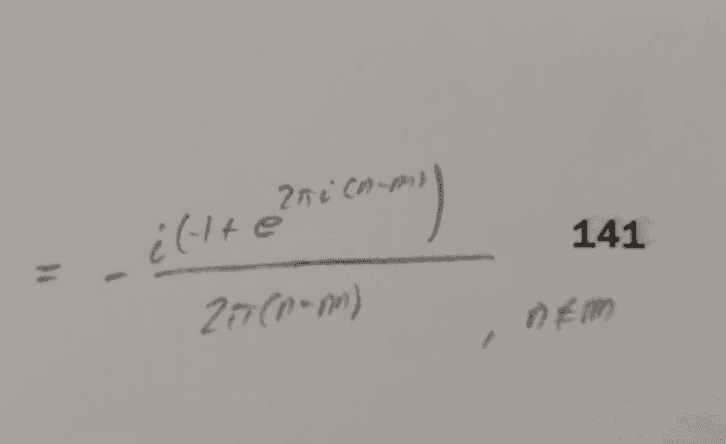 = - i(-1+e^{2πi(n-m)}) / 2π(n-m) , n≠m
141